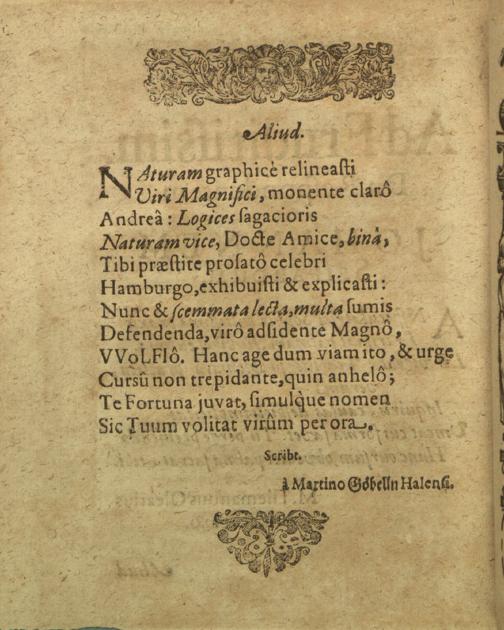 Aliud.
NAturam graphicè relineasti
Viri Magnifici, monente clarô
Andreâ: Logices sagacioris
Naturam vice, Docte Amice, binâ,
Tibi præstite prosatô celebri
Hamburgo, exhibuisti & explicasti:
Nunc & scemmata lecta, multa sumis
Defendenda, virô adsidente Magnô,
VVoLFIô. Hanc age dum viam ito, & urge
Cursû non trepidante, quin anhelô;
Te Fortuna juvat, simulque nomen
Sic Tuum volitat virûm per ora.
Scribt.
à Martino Göbelln Halens.